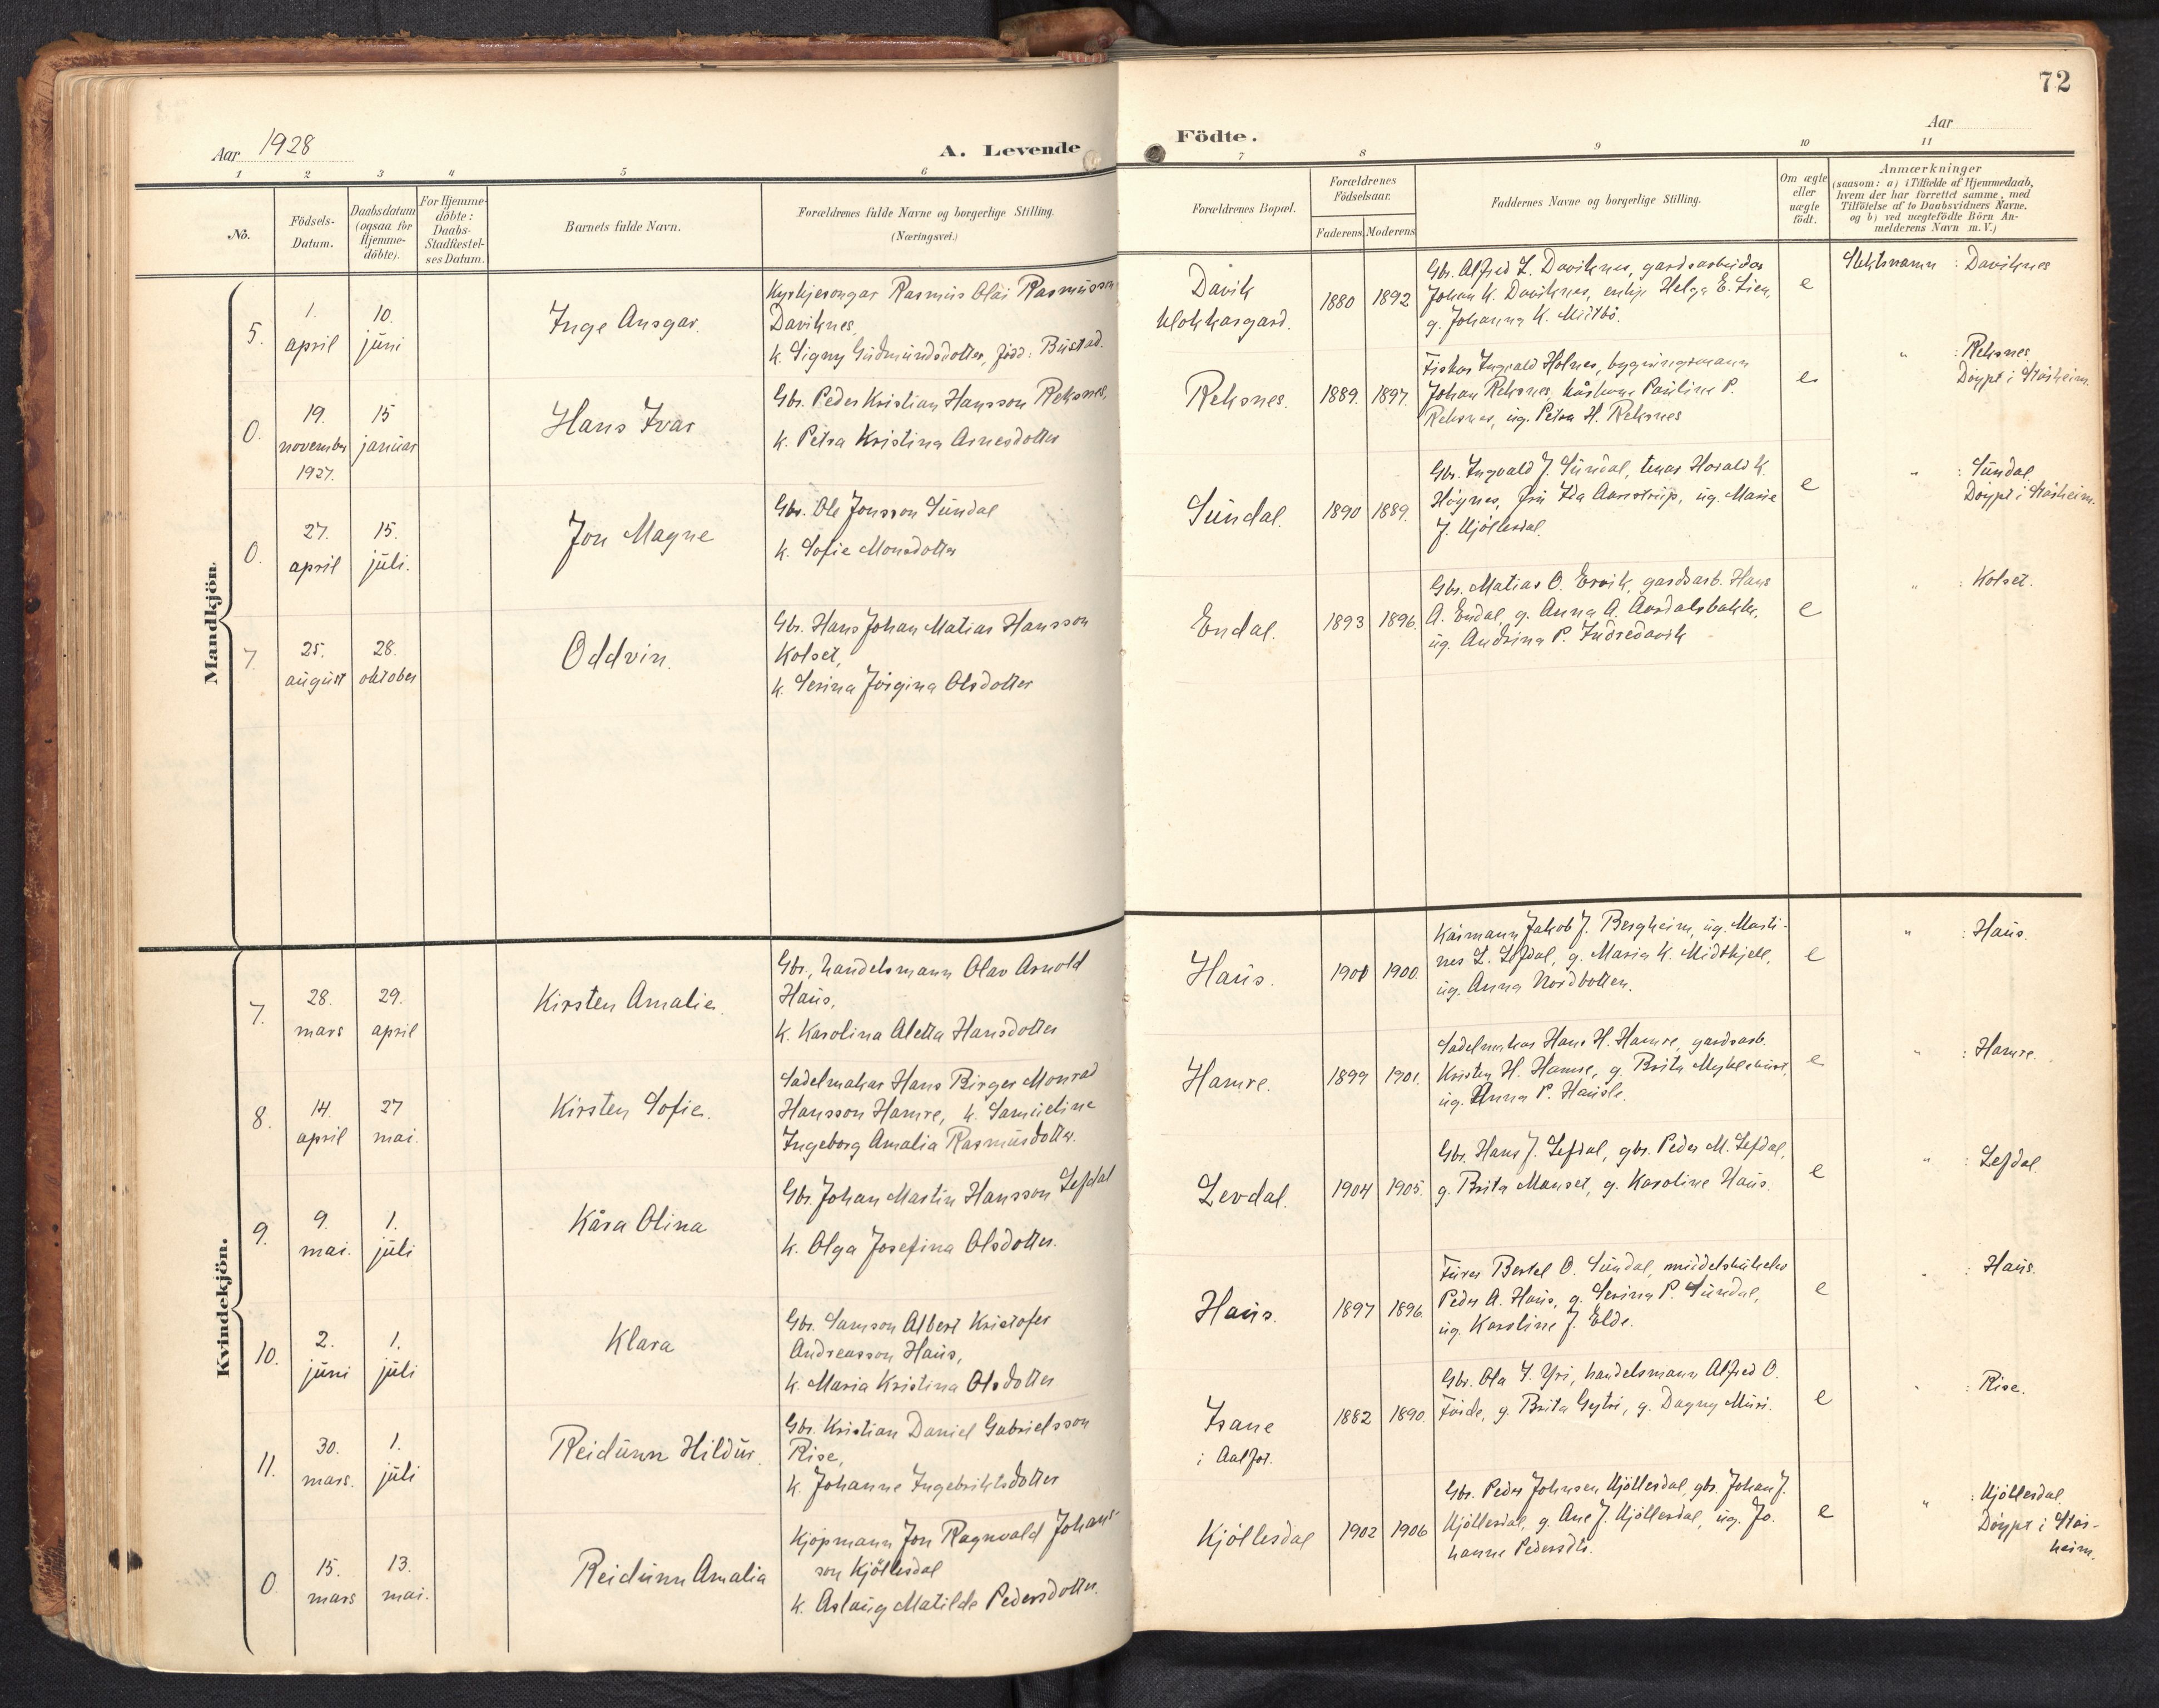 72
Aar 1928
A. Levende
Födte.
Aar
1
2
3
4
5
6
7
8
9
10
11
No.
Födsels-
Datum.
Daabsdatum
(ogsaa for
Hjemme-
döbte).
For Hjemme-
döbte:
Daabs-
Stadfæstel-
ses Datum.
Barnets fulde Navn.
Forældrenes fulde Navne og borgerlige Stilling.
(Næringsvei.)
Forældrenes Bopæl.
Forældrenes
Födselsaar.
Faderens.
Moderens
Faddernes Navne og borgerlige Stilling.
Om ægte
eller
uægte
født.
Anmærkninger
(saasom: a) i Tilfælde af Hjemmedaab,
hvem der har forrettet samme, med
Tilföielse af to Daabsvidners Navne,
og b) ved uægtefödte Börn An-
melderens Navn m. V.)
Mandkjön.
5.
1.
april
10.
júni
Inge Ansgar.
Kyrkjesongar Rasmus Olai Rasmússon
Daviknes,
k. Signy Gúdmúndsdotter, född: Bústad.
Davik
klokkargard.
1880
1892
Gbr. Alfred L. Daviknes, gardsarbeidar
Johan K. Daviknes, enkje Helga E. Lien,
g. Johanna K. Midtbö.
e
Slektsnamn : Daviknes
0.
19.
november
1927.
15
janúar
Hans Ivar
Gbr. Peder Kristian Hansson Reksnes,
k. Petra Kristina Arnesdotter
Reksnes.
1889.
1897.
Fiskar Ingvald Holnes, bygningsmann
Johan Reksnes, húskone Paúline P.
Reksnes, úg. Petra H. Reksnes
e
" : Reksnes.
Döypt i Stårheim.
0.
27.
april
15.
júli.
Jon Magne
Gbr. Ole Jonsson Súndal
k. Sofie Monsdotter
Súndal.
1890
1889.
Gbr. Ingvald J. Súndal, tenar Harald K.
Höynes, frú Ida Aarstrúp, úg. Marie
J. Kjöllesdal.
e
" : Súndal
Döypt i Stårheim.
7.
25.
aúgúst
28.
oktober
Oddvin.
Gbr. Hans Johan Matias Hansson
Kolset,
k. Serina Jörgina Olsdotter
Endal.
1893
1896.
Gbr. Matias O. Ervik, gardsarb. Hans
A. Endal, g. Anna A. Aardalsbakke,
úg. Andrina P. Indredavik
e
" : Kolset.
Kvindekjön.
7.
28.
mars
29.
april
Kirsten Amalie.
Gbr., handelsmann Olav Arnold
Haús,
k. Karolina Aletta Hansdotter
Haús.
1901
1900.
Kåsmann Jakob J. Bergheim, úg. Marti-
nes L. Lefdal, g. Maria K. Midtkjell,
úg. Anna Nordbotten.
e
" : Haús.
8.
14.
april
27
mai.
Kirsten Sofie.
Sadelmakar Hans Birger Monrad
Hansson Hamre, k. Samúeline
Ingeborg Amalia Rasmúsdotter.
Hamre.
1899
1901.
Sadelmakar Hans H. Hamre, gardsarb.
Kristen H. Hamre, g. Brita Myklebúst,
úg. Anna P. Haúsle.
e
" : Hamre.
9.
9.
mai.
1.
júli
Kåra Olina
Gbr. Johan Martin Hansson Lefdal
k. Olga Josefina Olsdotter.
Levdal.
1904
1905.
Gbr. Hans J. Lefdal, gbr. Peder M. Lefdal,
g. Brita Manset, g. Karoline Haús.
e
" : Lefdal.
10.
2.
júni
1.
júli
Klara
Gbr. Samson Albert Kristofer
Andreasson Haús,
k. Maria Kristina Olsdotter
Haús.
1897
1896.
Fúrer Bertel O. Súndal, middelskúleelev
Peder A. Haús, g. Serina P. Súndal,
úg. Karoline J. Elde.
e
" : Haús.
11.
30.
mars.
1.
júli
Reidúnn Hildúr.
Gbr. Kristian Daniel Gabrielsson
Rise,
k. Johanne Ingebriktsdotter
Isane
i Aalfot.
1882
1890.
Gbr. Ola I. Yri, handelsmann Alfred O.
Förde, g. Brita Gytri, g. Dagny Múri.
e
" : Rise.
0.
15.
mars
13.
mai.
Reidúnn Amalia
Kjöpmann Jon Ragnvald Johans-
son Kjöllesdal
k. Aslaúg Matilde Pedersdotter.
Kjöllesdal
1902
1906
Gbr. Peder Johnsen Kjöllesdal, gbr. Johan J.
Kjöllesdal, g. Ane J. Kjöllesdal, úg. Jo-
hanne Pedersdtr.
e
" : Kjöllesdal
Döypt i Står-
heim.